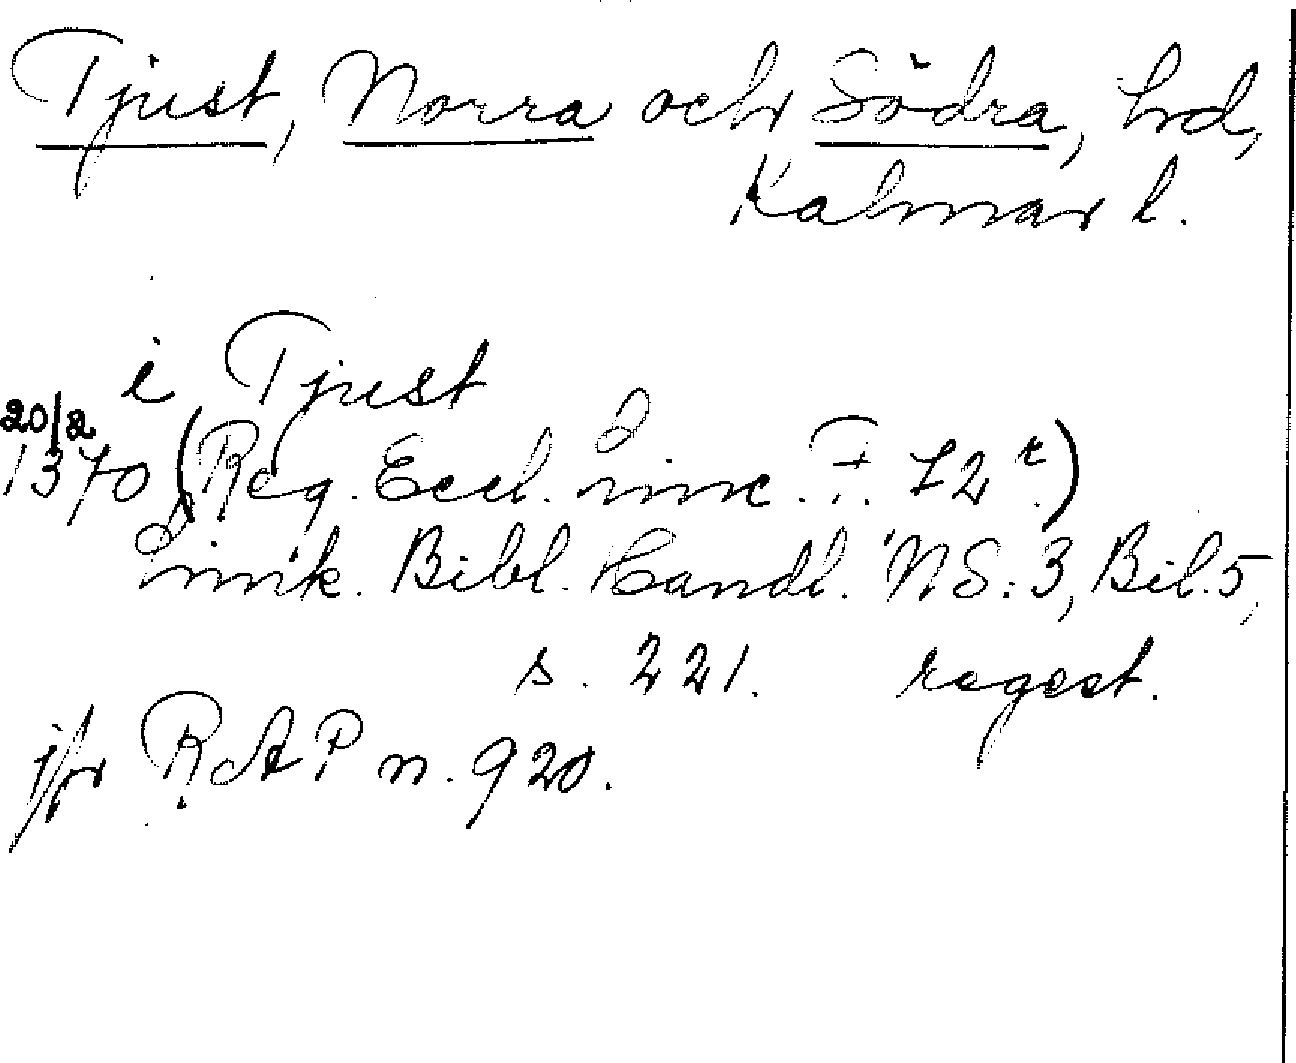 Tjust, Norra och Södra, hd,
Kalmar l.
i Tjust
20/2
1370 (Reg. Eccl. Linc. F. 72 r.)
Link. Bibl. Handl. NS: 3, Bil. 5,
s. 221. regest.
jfr RAP n. 920.